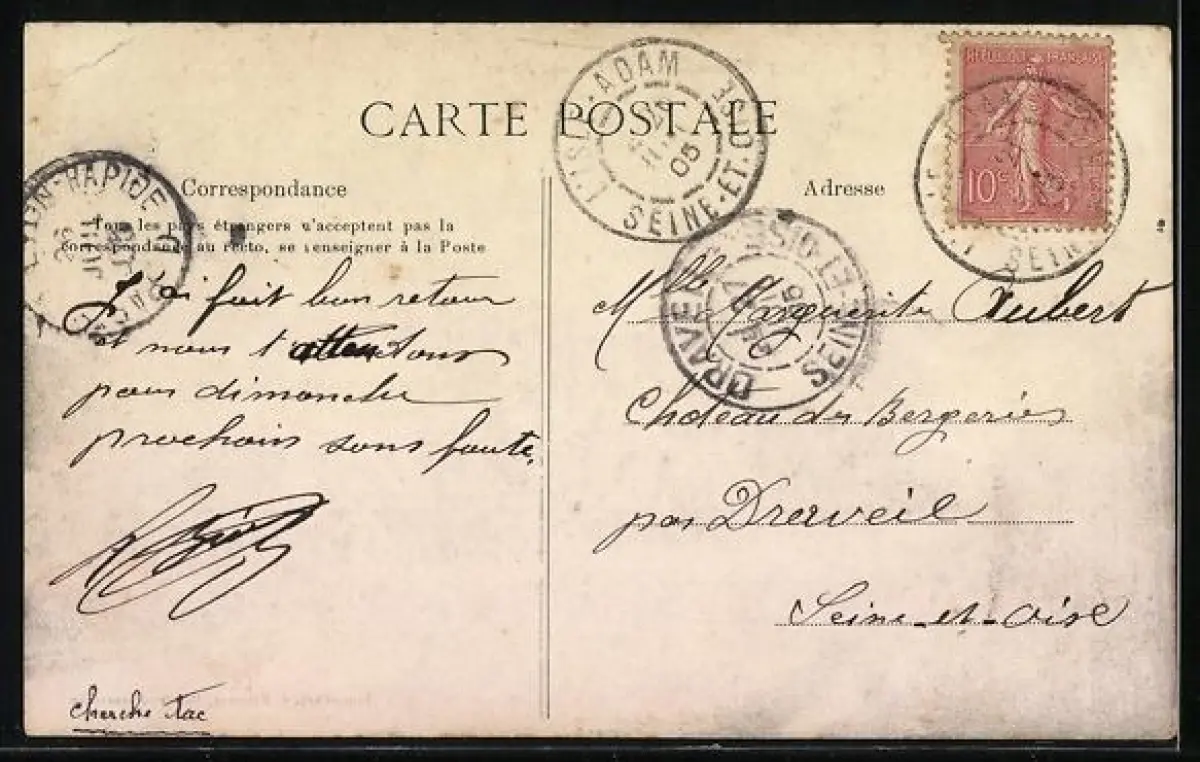 CARTE POSTALE
Correspondance
Tous les pays étrangers n'acceptent pas la
correspondance au recto, se renseigner à la Poste
J'ai fait bon retour
et nous t'attendons
pour dimanche
prochain sans faute.
cherche tac
Adresse
Mlle Marguerite Aubert
Château des Bergeries
par Draveil
Seine-et-Oise
L'ISLE-ADAM
05
SEINE-ET-OISE
DRAVEIL
SEINE-ET-OISE
LYON-RAPIDE
REPUBLIQUE FRANÇAISE
10c